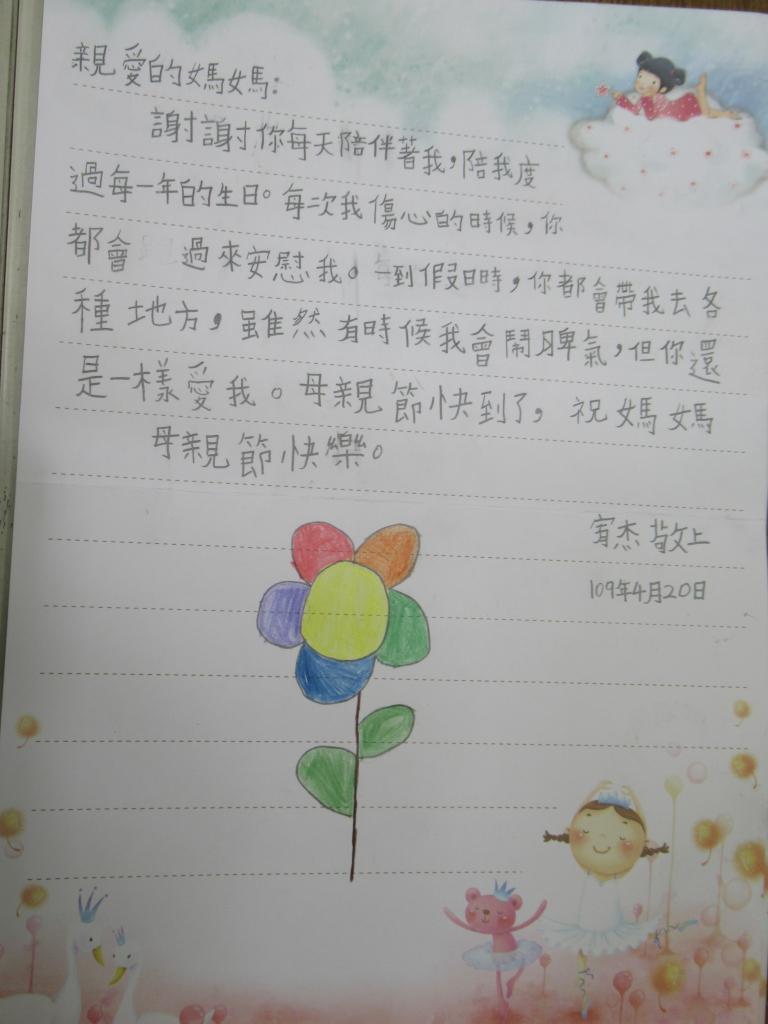 親愛的媽媽：
謝謝你每天陪伴著我，陪我度
過每一年的生日。每次我傷心的時候，你
都會 過來安慰我。一到假日時，你都會帶我去各
種地方，雖然有時候我會鬧脾氣，但你還
是一樣愛我。母親節快到了，祝媽媽
母親節快樂。
宥杰 敬上
109年4月20日